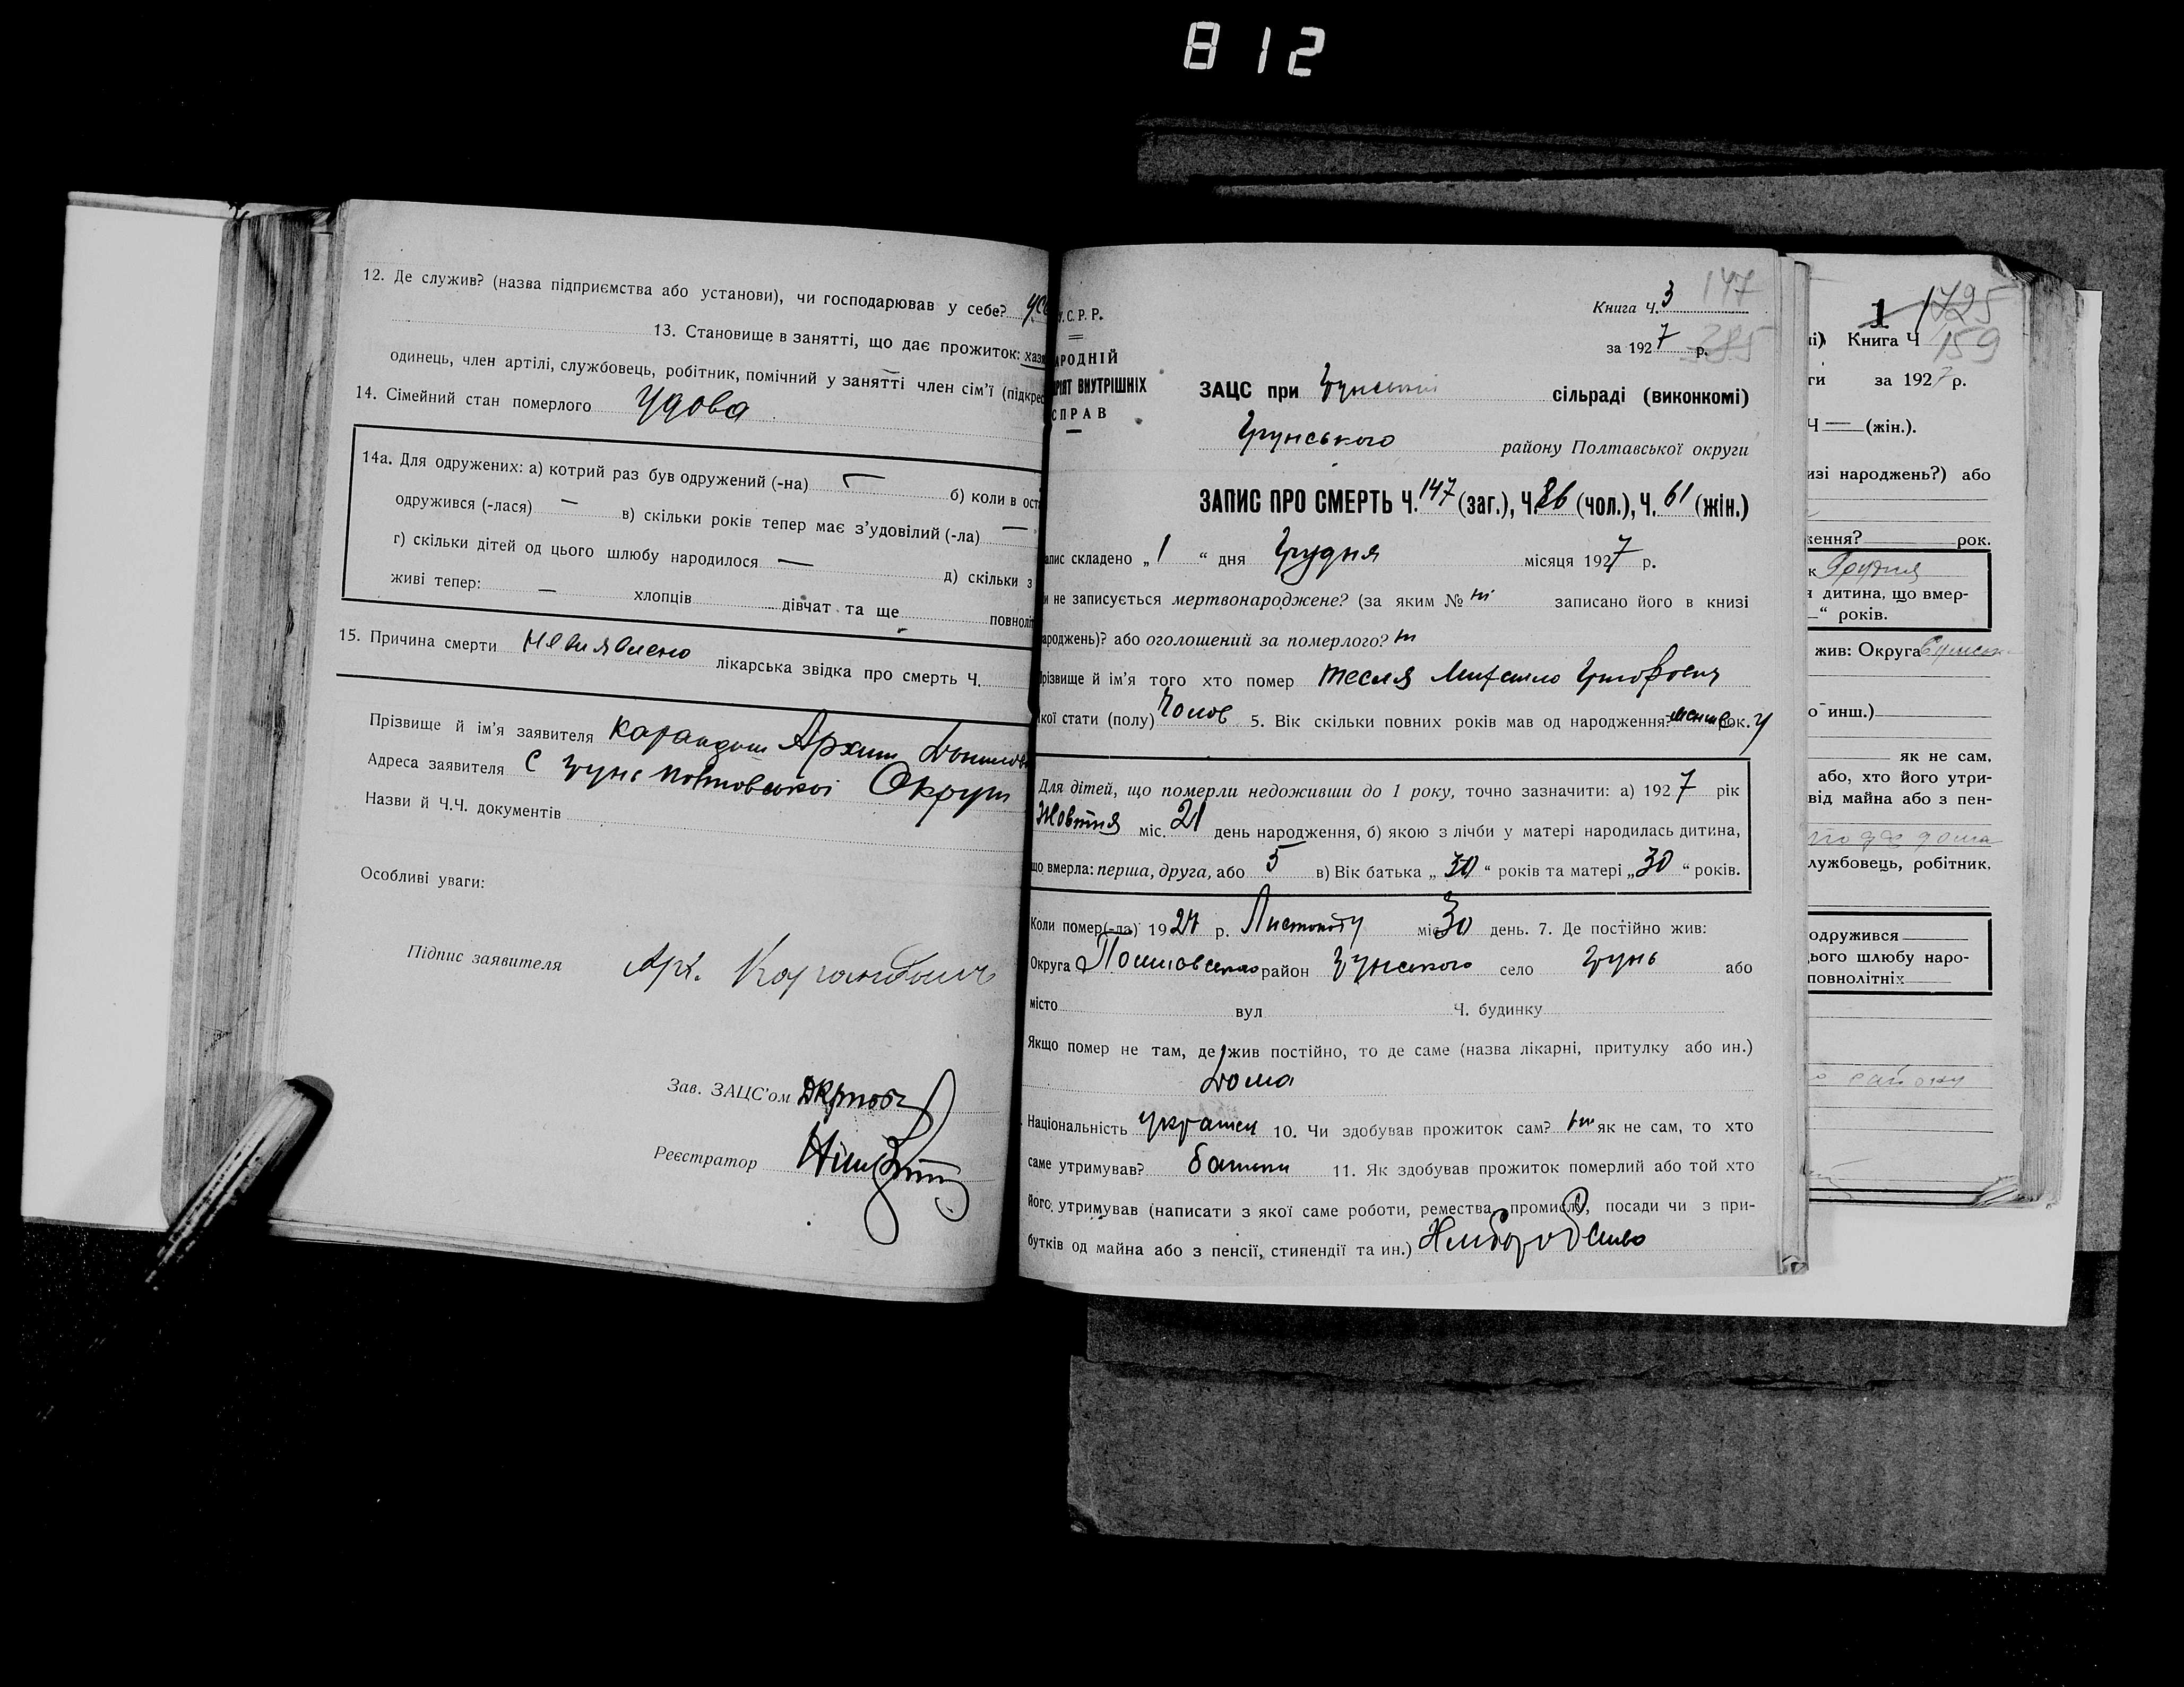 812
12. Де служив? (назва підприємства або установи), чи господарював у себе?
13. Становище в занятті, що дає прожиток: хазя
одинець, член артілі, службовець, робітник, помічний у занятті член сім'ї (підкрес
14. Сімейний стан померлого Удова
14а. Для одружених: а) котрий раз був одружений (-на) — б) коли в ост
одружився (-лася) — в) скільки років тепер має з'удовілий (-ла) —
г) скільки дітей од цього шлюбу народилося — д) скільки з
живі тепер: — хлопців дівчат та ще повноліт
15. Причина смерти Невиявлено лікарська звідка про смерть Ч.
Прізвище й ім'я заявителя Карандаш Архип
Адреса заявителя С Грунь Полтовської Округи
Назви й Ч.Ч. документів
Особливі уваги:
Підпис заявителя Арх.
Зав. ЗАЦС'ом
Реєстратор
.С.Р.Р.
АРОДНІЙ
РІЯТ ВНУТРІШНІХ
СПРАВ
Книга Ч. 3 147
за 1927 р. 285
ЗАЦС при Грунській сільраді (виконкомі)
Грунського району Полтавської округи
ЗАПИС ПРО СМЕРТЬ Ч. 147 (заг.), Ч. 86 (чол.), Ч. 61 (жін.)
апис складено „1 “ дня Грудня місяця 1927 р.
и не записується мертвонароджене? (за яким № ні записано його в книзі
ароджень)? або оголошений за померлого? ні
Прізвище й ім'я того хто помер Тесля Михайло Григорович
кої стати (полу) Чолов 5. Вік скільки повних років мав од народження? менше рок. у
Для дітей, що померли недоживши до 1 року, точно зазначити: а) 1927 рік
Жовтня міс. 21 день народження, б) якою з лічби у матері народилась дитина,
що вмерла: перша, друга, або 5 в) Вік батька „ 30 “ років та матері „ 30 “ років.
Коли помер(-ла) 1927 р. Листопаду міс 30 день. 7. Де постійно жив:
Округа Полтовською район Грунського село Грунь або
місто вул Ч. будинку
Якщо помер не там, де жив постійно, то де саме (назва лікарні, притулку або ин.)
Дома
Національність Украйн 10. Чи здобував прожиток сам? ні як не сам, то хто
саме утримував? батьки 11. Як здобував прожиток померлий або той хто
його утримував (написати з якої саме роботи, ремества, промислу, посади чи з при-
бутків од майна або з пенсії, стипендії та ин.) Хліборобство
1 1725
і) Книга Ч 159
ги за 1927 р.
Ч — (жін.).
изі народжень?) або
ження? рок.
к Грудня
я дитина, що вмер-
—“ років.
жив: Округа
о инш.)
як не сам,
або, хто його утри-
від майна або з пен-
лужбовець, робітник.
одружився
ього шлюбу наро-
повнолітніх
району